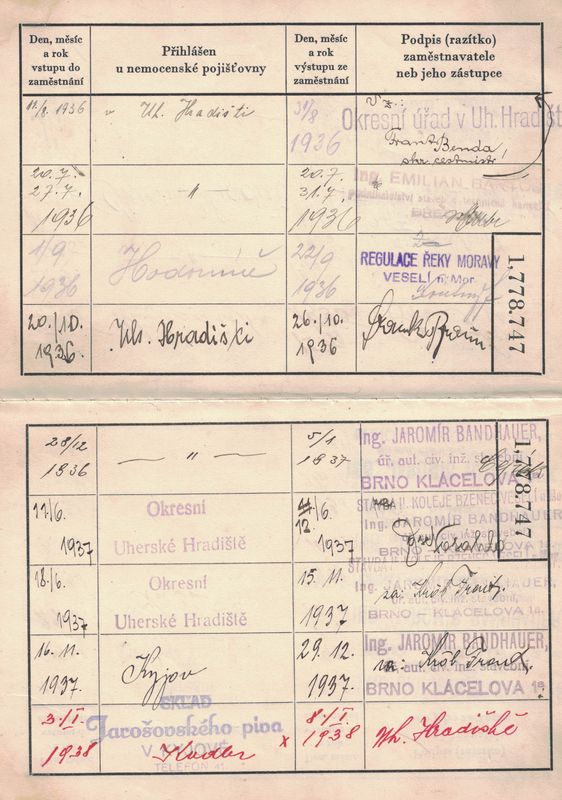 Den, měsíc
a rok
vstupu do
zaměstnání
Přihlášen
u nemocenské pojišťovny
Den, měsíc
a rok
výstupu ze
zaměstnání
Podpis (razítko)
zaměstnavatele
neb jeho zástupce
11/8. 1936
v Uh. Hradišti
31/8
1936
v z.:
Okresní úřad v Uh. Hradišt
Frant. Benda,
okr. cestmistr
20.7.
27.7.
1936
"
20.7.
31.7.
1936
Ing. EMILIAN
1/9
1936
Hodoníně
22/9
1936
REGULACE ŘEKY MORAVY
VESELÍ n. Mor.
20./10.
1936.
Uh. Hradišti
26./10.
1936.
1,778.747
28/12
1936
— " —
5/1
1937
Ing. JAROMÍR BANDHAUER,
úř. aut. civ. inž. stavební
BRNO KLÁCELOVA
1,778.747
17/6.
1937
Okresní
Uherské Hradiště
12/6.
1937
STAVBA II. KOLEJE BZENEC
Ing. JAROMÍR BANDHAUER
BRNO – KLÁCELOVA 1a.
18./6.
1937
Okresní
Uherské Hradiště
15. 11.
1937
Ing. JAROMÍR BANDHAUER,
úř. aut. civ. inž. stavební,
BRNO – KLÁCELOVA 1a.
za:
16. 11.
1937.
Kyjov
29. 12.
1937.
Ing. JAROMÍR BANDHAUER,
úř. aut. civ. inž. stavební
BRNO KLÁCELOVA 1a
3./I.
1938
SKLAD
Jarošovského piva
V KYJOVĚ
TELEFON
x
8./I.
1938
Uh. Hradiště